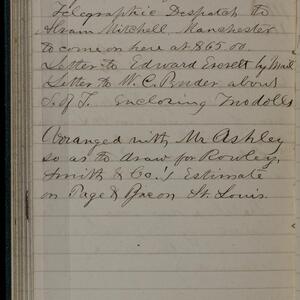 Telegraphic Despatch to
Hiram Mitchell Manchester
to come on here at $65.00.
Letter to Edward Everett by Mail
Letter to W. C. about
S. of T. Enclosing Two dolls
Arranged with Mr Ashley
so as to draw for Rowley,
Smith & Co.'s Estimate
on Page & Bacon St. Louis.